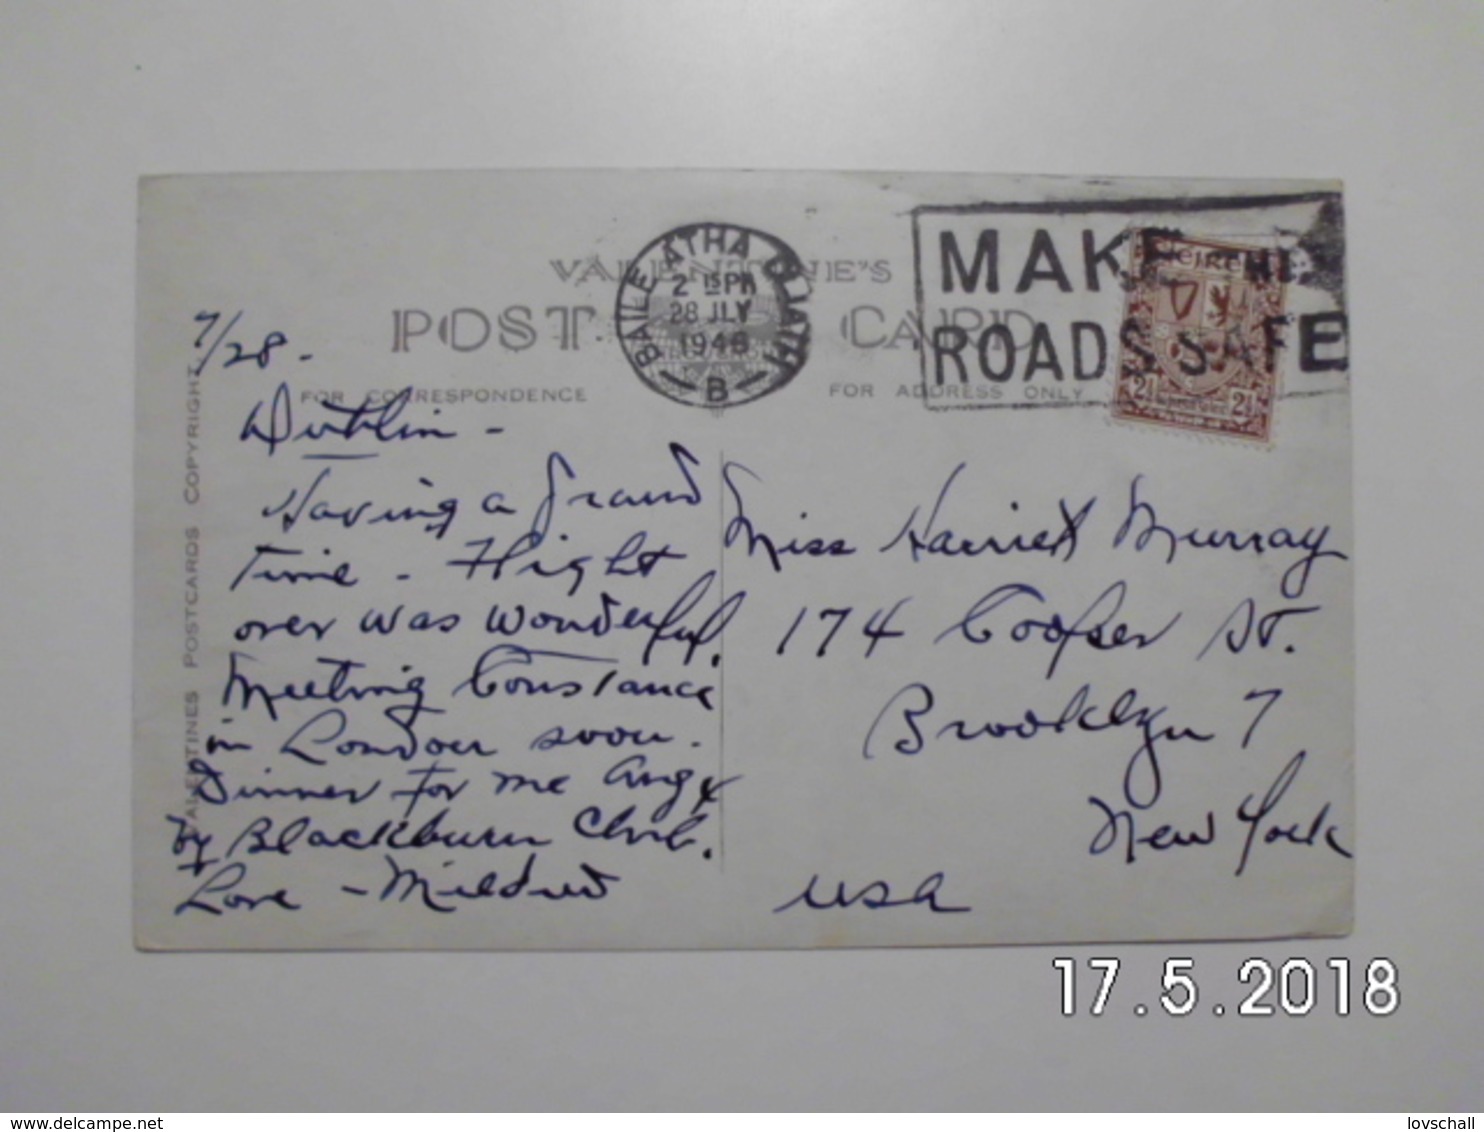 VALENTINE'S
POST CARD
FOR CORRESPONDENCE
FOR ADDRESS ONLY
VALENTINES POSTCARDS COPYRIGHT
BAILE ATHA CLIATH
2 15PM
28 JLY
1948
B
MAKE THE
ROADS SAFE
EIRE
2½ 2½
7/28 -
Dublin -
Having a grand
time - Flight
over was wonderful.
Meeting Constance
in London soon.
Dinner for me Aug 4
by Blackburn Club.
Love - Mildred
Miss Harriet Murray
174 Cooper St.
Brooklyn 7
New York
USA
17.5.2018
www.delcampe.net
lovschall